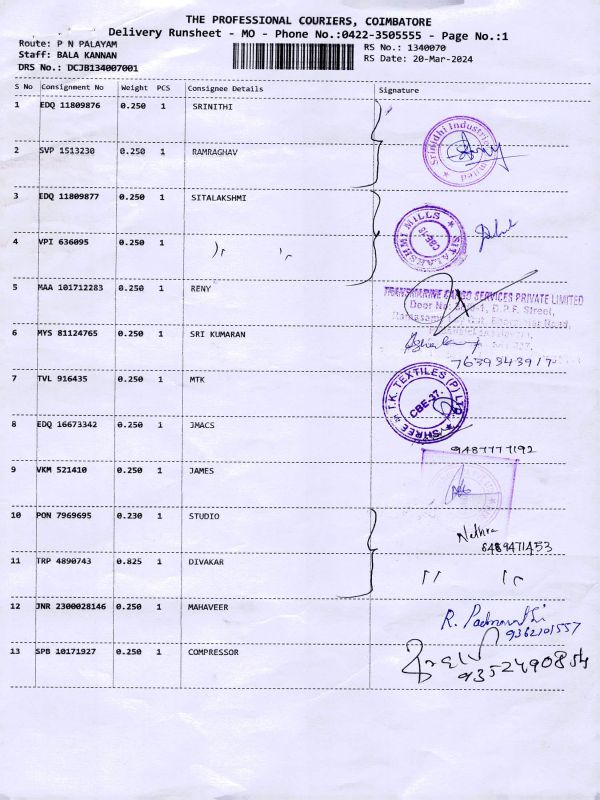 THE PROFESSIONAL COURIERS, COIMBATORE
Delivery Runsheet - MO - Phone No.:0422-3505555 - Page No.:1
Route: P N PALAYAM
RS No.: 1340070
Staff: BALA KANNAN
RS Date: 20-Mar-2024
DRS No.: DCJB134007001
S No Consignment No Weight PCS Consignee Details Signature
1 EDQ 11809876 0.250 1 SRINITHI
2 SVP 1513230 0.250 1 RAMRAGHAV
3 EDQ 11809877 0.250 1 SITALAKSHMI
SITALAKSHMI MILLS
4 VPI 636095 0.250 1
5 MAA 101712283 0.250 1 RENY
TRANSMARINE CARGO SERVICES PRIVATE LIMITED
D.P.F. Street,
6 MYS 81124765 0.250 1 SRI KUMARAN
7639343917
7 TVL 916435 0.250 1 MTK
SHREE T.K. TEXTILES (P) LTD.
CBE-37.
8 EDQ 16673342 0.250 1 JMACS
9487777192
9 VKM 521410 0.250 1 JAMES
10 PON 7969695 0.230 1 STUDIO
Nethra
8489471453
11 TRP 4890743 0.825 1 DIVAKAR
12 JNR 2300028146 0.250 1 MAHAVEER
R. Padmavathi
9362101557
13 SPB 10171927 0.250 1 COMPRESSOR
9352490854